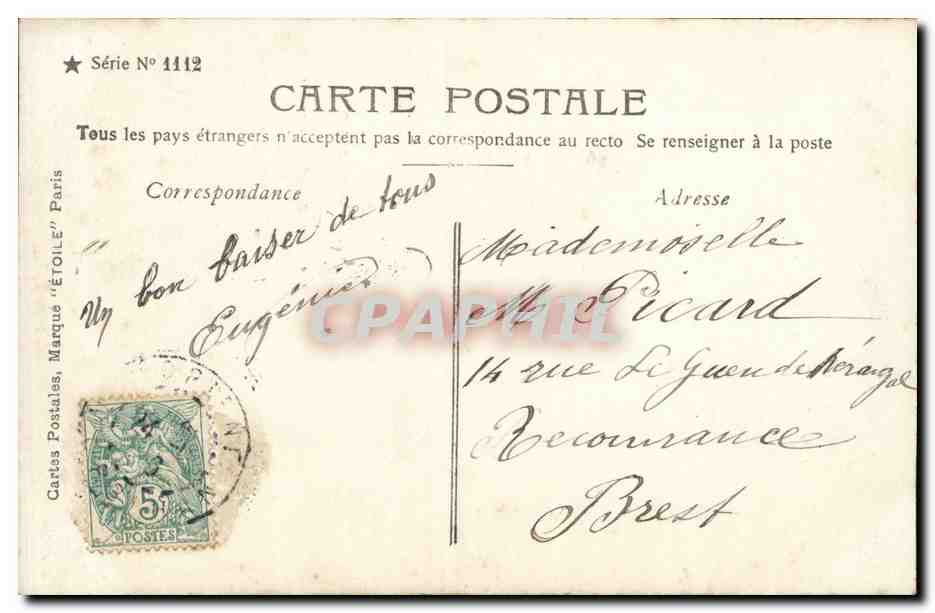 ★ Série Nº 1112
CARTE POSTALE
Tous les pays étrangers n'acceptent pas la correspondance au recto Se renseigner à la poste
Correspondance
Adresse
Cartes Postales, Marque "ÉTOILE" Paris
Un bon baiser de tous
Eugénie
Mademoiselle
M Picard
14 rue Le Guen de Kérangal
Recouvrance
Brest
5c
POSTES
CPAPHIL